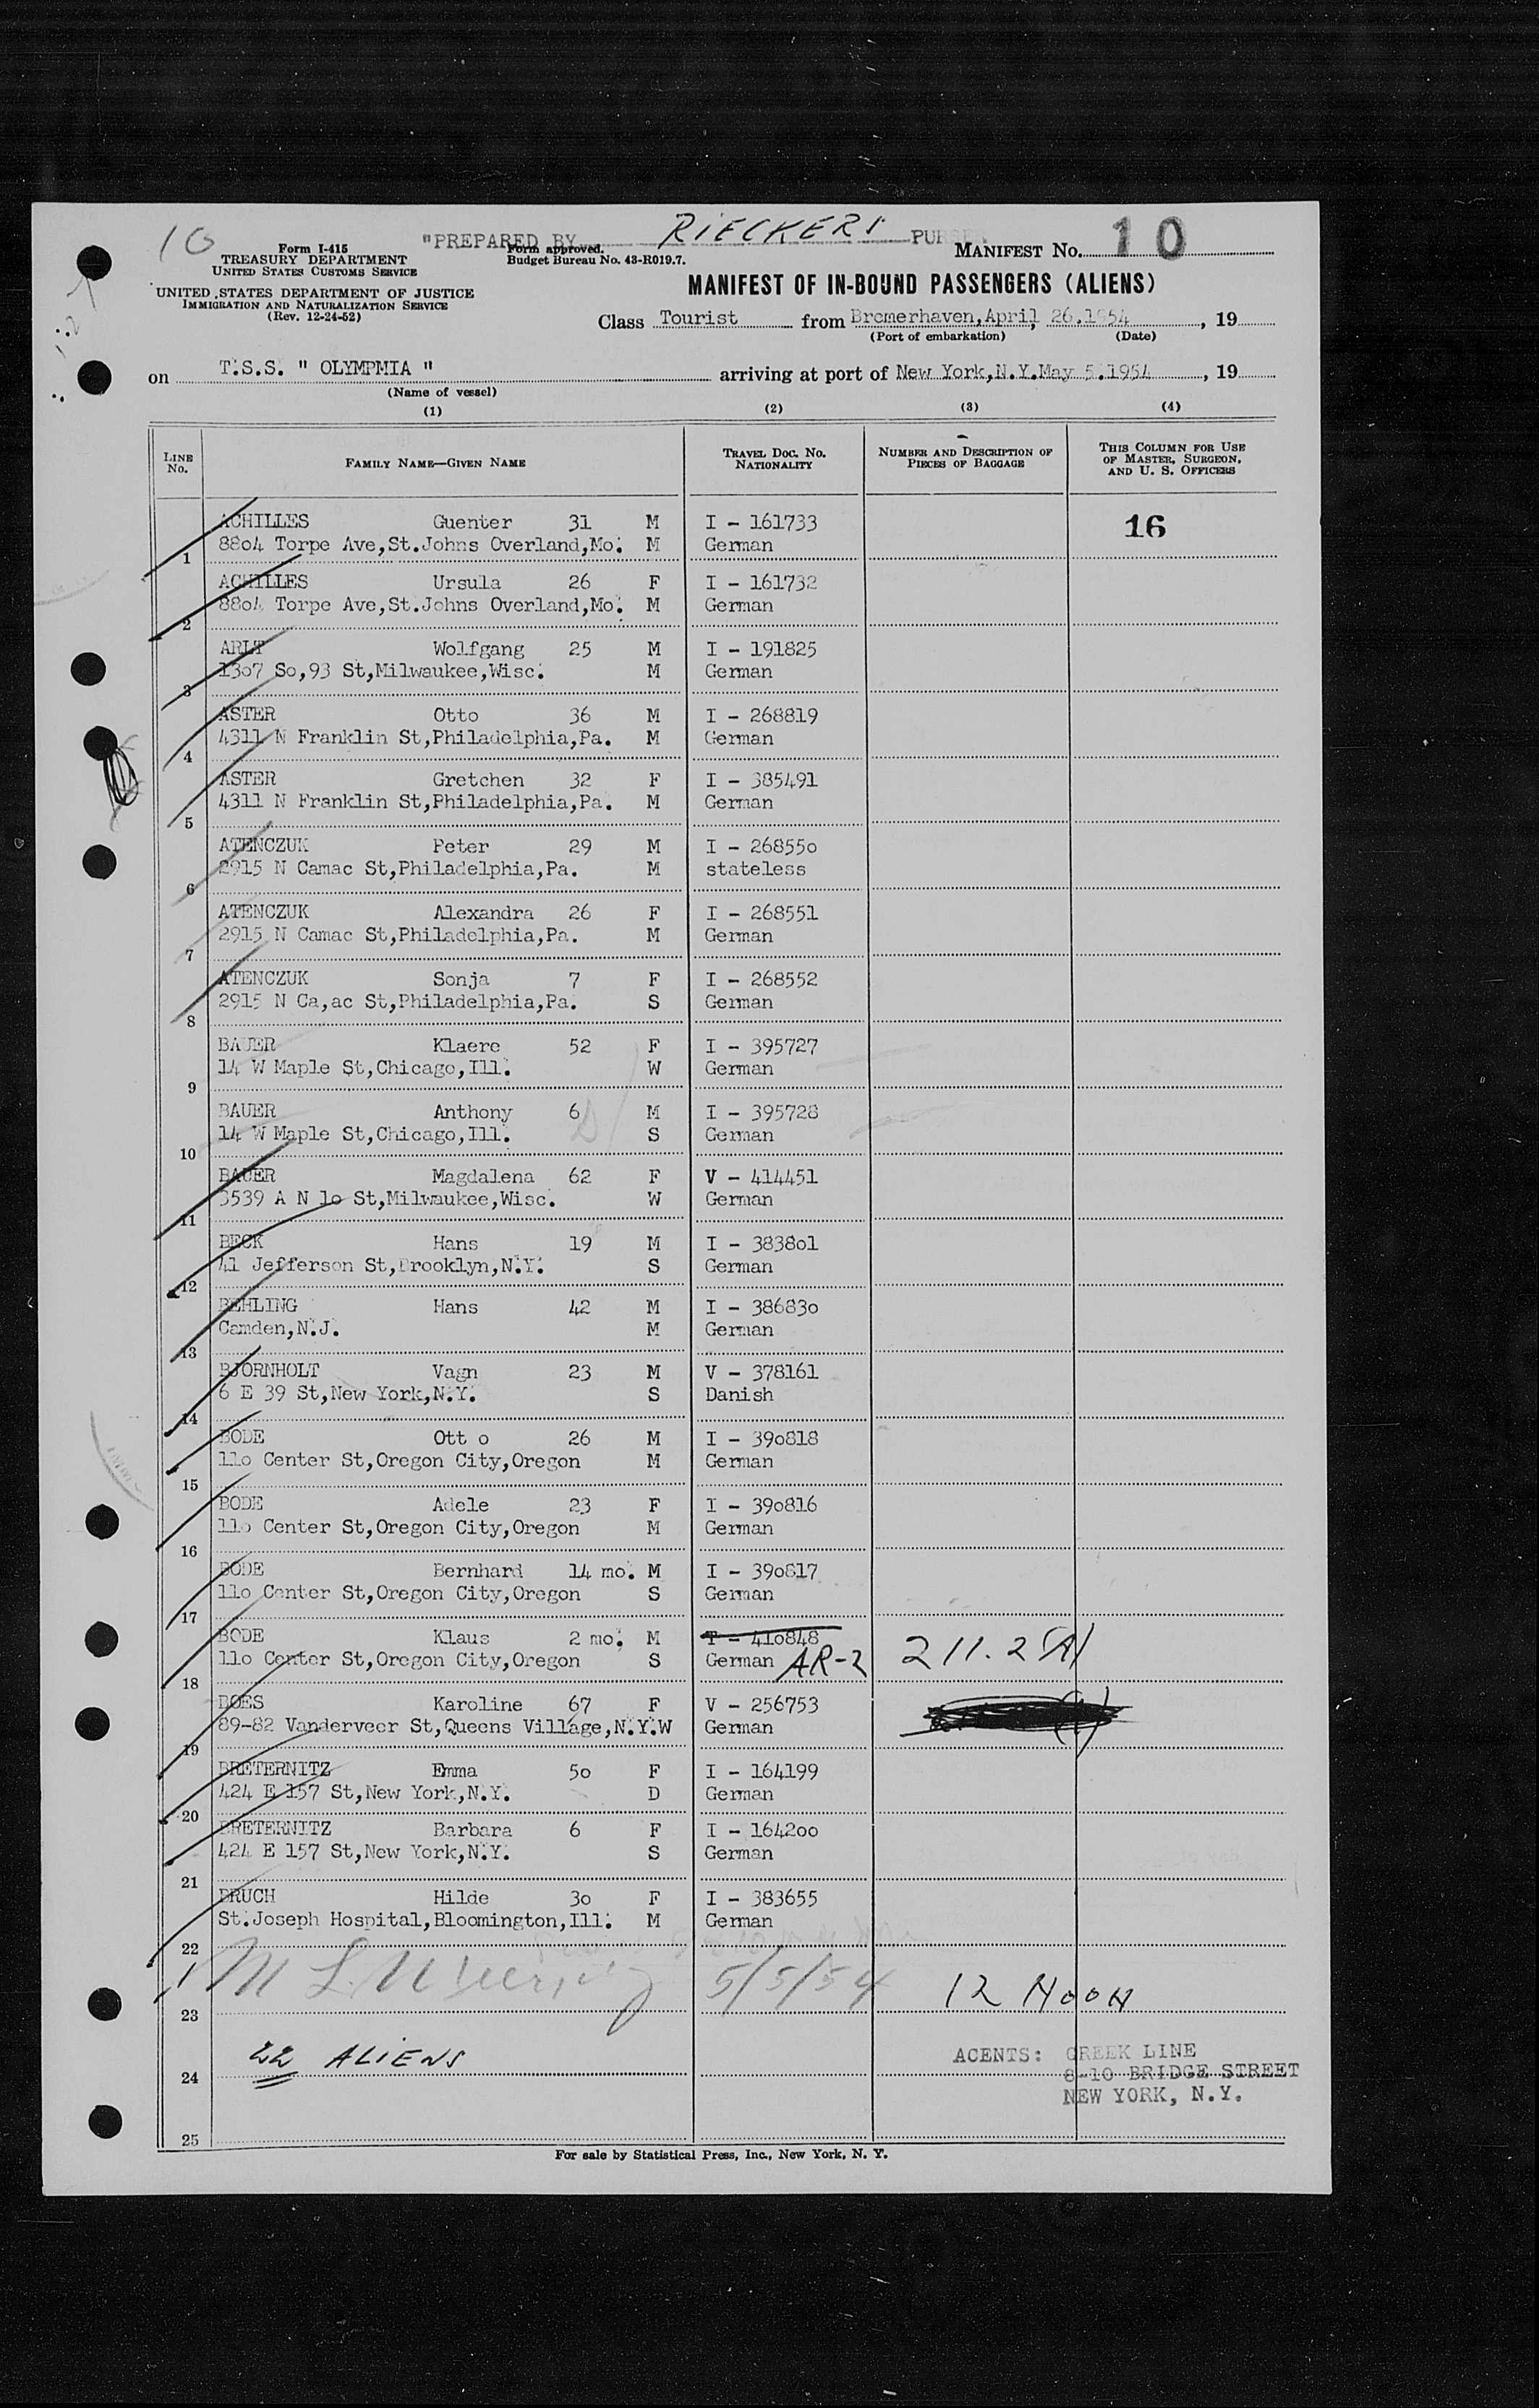 10
"PREPARED BY RIECKERS PURSER
Form I-415
TREASURY DEPARTMENT
UNITED STATES CUSTOMS SERVICE
Form approved.
Budget Bureau No. 43-R019.7.
MANIFEST No. 10
UNITED STATES DEPARTMENT OF JUSTICE
IMMIGRATION AND NATURALIZATION SERVICE
(Rev. 12-24-52)
MANIFEST OF IN-BOUND PASSENGERS (ALIENS)
Class Tourist from Bremerhaven,April, 26.1954, 19
(Port of embarkation) (Date)
on T.S.S. " OLYMPMIA " arriving at port of New York,N.Y.May 5.1954, 19
(Name of vessel)
(1) (2) (3) (4)
LINE No. FAMILY NAME—GIVEN NAME TRAVEL DOC. NO. NATIONALITY NUMBER AND DESCRIPTION OF PIECES OF BAGGAGE THIS COLUMN FOR USE OF MASTER, SURGEON, AND U. S. OFFICERS
ACHILLES Guenter 31 M I - 161733 16
88o4 Torpe Ave,St.Johns Overland,Mo. M German
1
ACHILLES Ursula 26 F I - 161732
88o4 Torpe Ave,St.Johns Overland,Mo. M German
2
ARLT Wolfgang 25 M I - 191825
13o7 So,93 St,Milwaukee,Wisc. M German
3
ASTER Otto 36 M I - 268819
4311 N Franklin St,Philadelphia,Pa. M German
4
ASTER Gretchen 32 F I - 385491
4311 N Franklin St,Philadelphia,Pa. M German
5
ATENCZUK Peter 29 M I - 26855o
2915 N Camac St,Philadelphia,Pa. M stateless
6
ATENCZUK Alexandra 26 F I - 268551
2915 N Camac St,Philadelphia,Pa. M German
7
ATENCZUK Sonja 7 F I - 268552
2915 N Ca,ac St,Philadelphia,Pa. S German
8
BAUER Klaere 52 F I - 395727
14 W Maple St,Chicago,Ill. W German
9
BAUER Anthony 6 M I - 395728
14 W Maple St,Chicago,Ill. S German
10
BAUER Magdalena 62 F V - 414451
3539 A N 1o St,Milwaukee,Wisc. W German
11
BECK Hans 19 M I - 3838o1
41 Jefferson St,Brooklyn,N.Y. S German
12
BEHLING Hans 42 M I - 38683o
Camden,N.J. M German
13
BJORNHOLT Vagn 23 M V - 378161
6 E 39 St,New York,N.Y. S Danish
14
BODE Ott o 26 M I - 39o818
11o Center St,Oregon City,Oregon M German
15
BODE Adele 23 F I - 39o816
11o Center St,Oregon City,Oregon M German
16
BODE Bernhard 14 mo. M I - 39o817
11o Center St,Oregon City,Oregon S German
17
BODE Klaus 2 mo. M T - 41o848
11o Center St,Oregon City,Oregon S German AR-2 211.2(A)
18
BOES Karoline 67 F V - 256753
89-82 Vanderveer St,Queens Village,N.Y.W German
19
BRETERNITZ Emma 5o F I - 164199
424 E 157 St,New York,N.Y. D German
20
BRETERNITZ Barbara 6 F I - 1642oo
424 E 157 St,New York,N.Y. S German
21
BRUCH Hilde 3o F I - 383655
St.Joseph Hospital,Bloomington,Ill. M German
22
5/5/54 12 NOON
23
22 ALIENS
AGENTS: GREEK LINE
8-10 BRIDGE STREET
NEW YORK, N.Y.
24
25
For sale by Statistical Press, Inc., New York, N. Y.